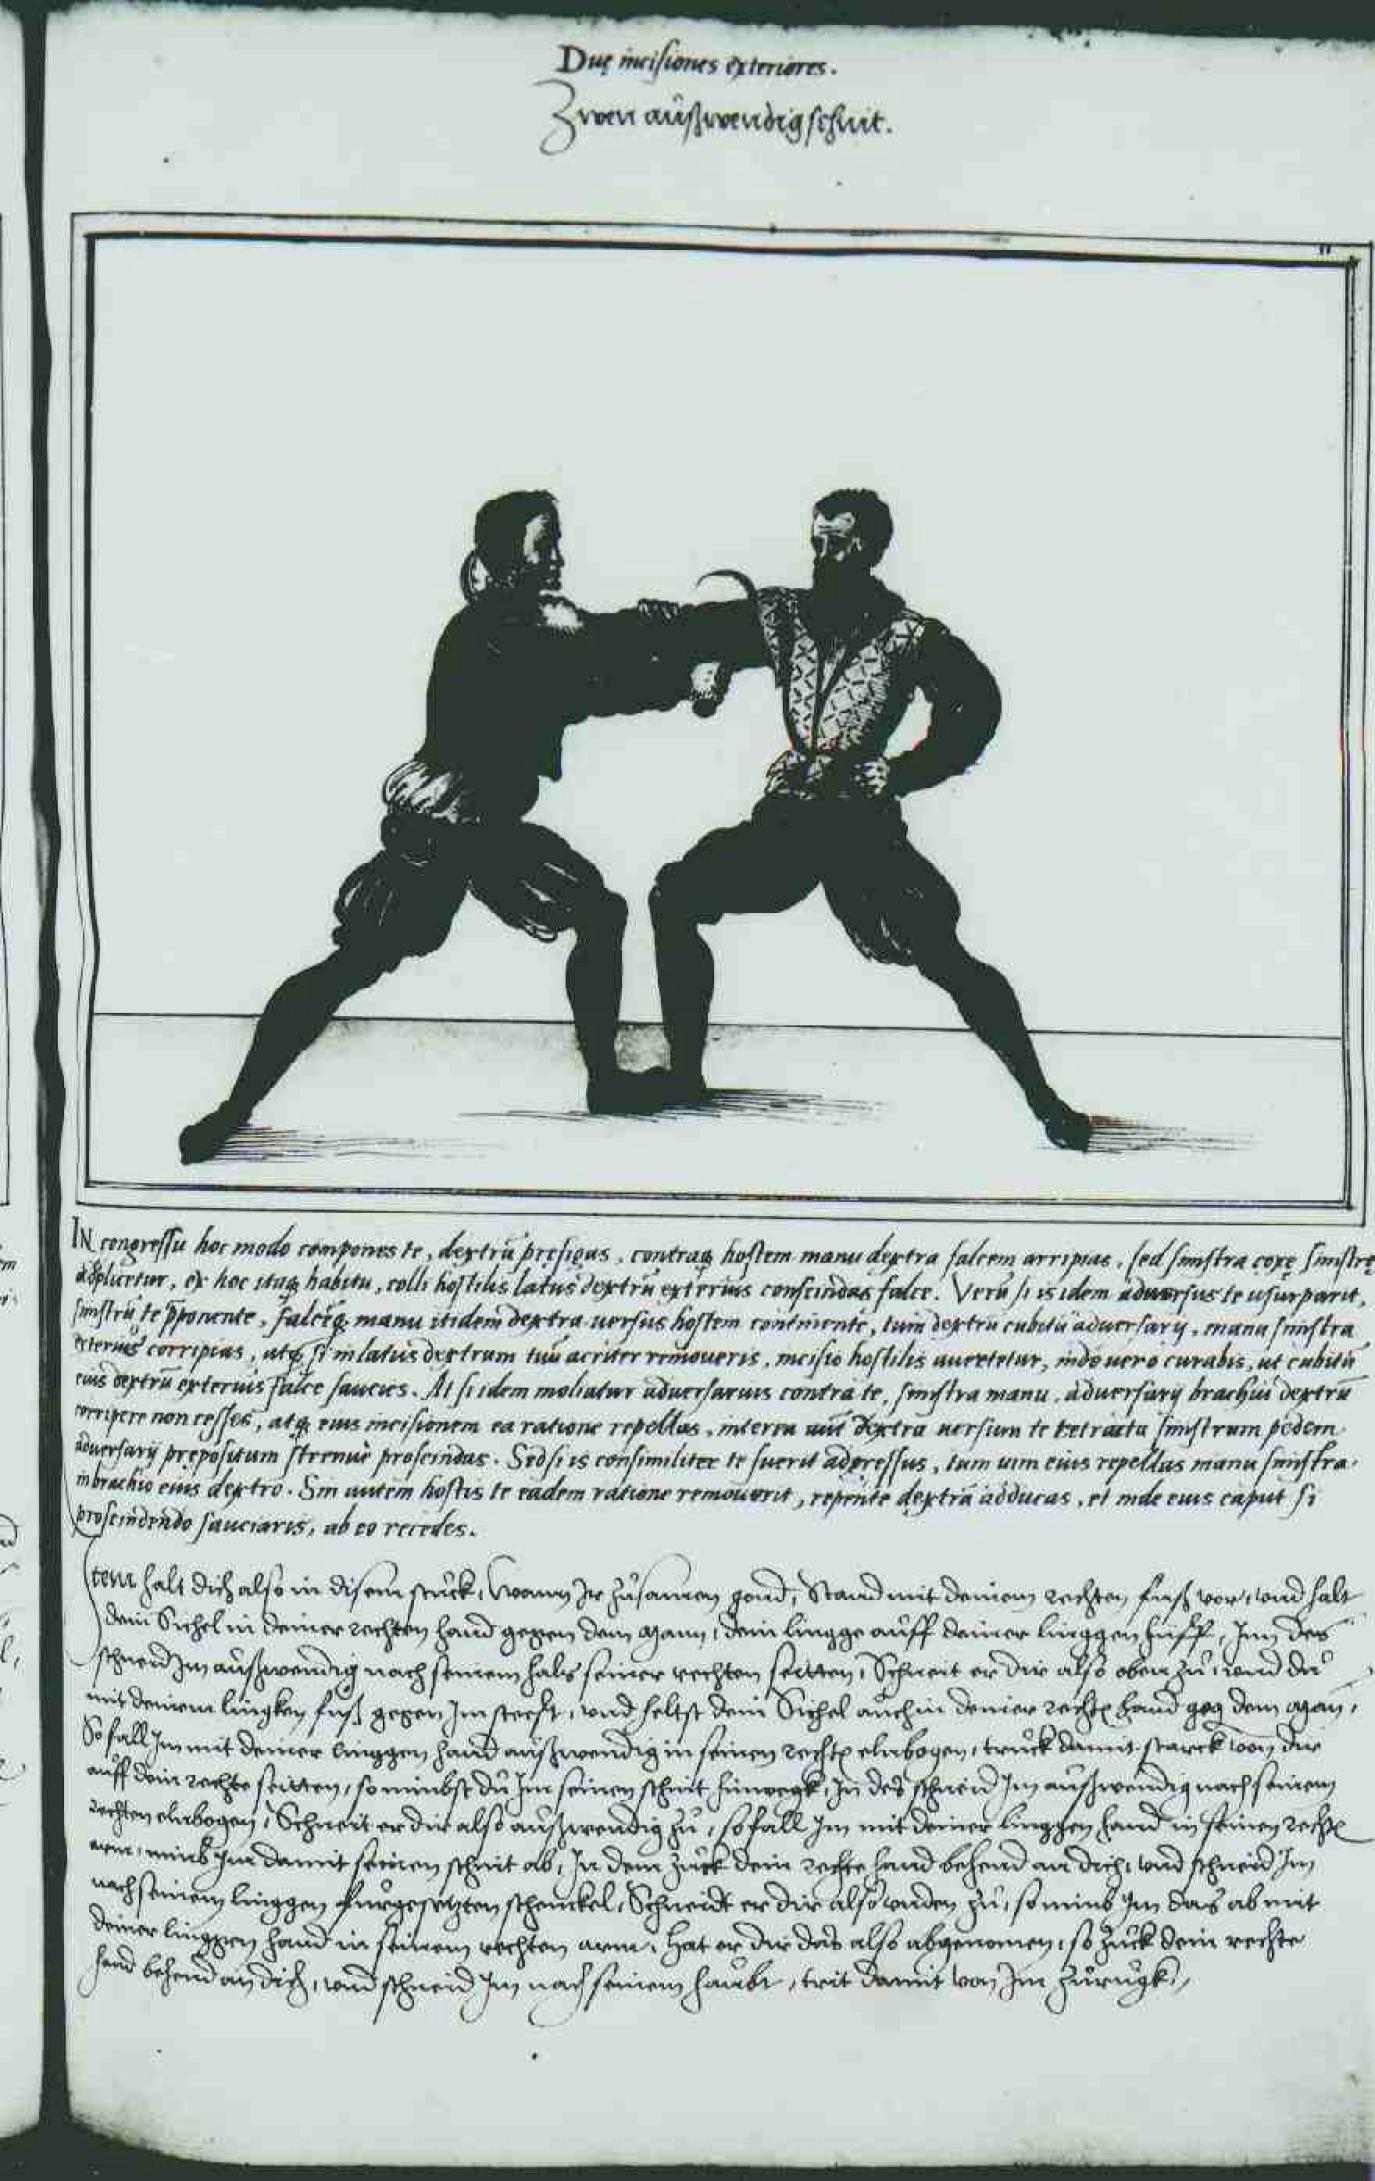 Duę incisiones exteriores.
Zwen aůßwendig schnit.
IN congressu hoc modo compones te, dextrū pręfigas, contraq hostem manu dextra falcem arripias, sed sinistra coxę sinistrę
adplicetur, ex hoc itaq habitu, colli hostilis latus dextrū exterius conscindas falce. Verū si is idem adversus te usurparit,
sinistrū te pponente, falcēq manu itidem dextra versus hostem continente, tum dextrū cubitū adversarÿ, manu sinistra
exterius corripias, atq si in latus dextrum tuū acriter removeris, incisio hostilis avertetur, inde vero curabis, ut cubitū
eius dextrū exterius falce saucies. At si idem moliatur adversarius contra te, sinistra manu, adversarÿ brachiū dextrū
corripere non cesses, atq eius incisionem ea ratione repellas, interea aūt dextra versum te retracta sinistrum pedem
adversarÿ prępositum strenuè proscindas. Sed si is consimiliter te fuerit adgressus, tum vim eius repellas manu sinistra
in brachio eius dextro. Sin autem hostis te eadem ratione removerit, repente dextrā adducas, et inde eius caput si
proscindendo sauciaris, ab eo recedes.
Item halt dich also in disem stuck, Wann Ir zůsamen gond, Stand mit deinem rechten fuß vor, und halt
dein Sichel in deiner rechten hand gegen dem Mann, dein lingge auff deiner linggen hüff, Inn des
schneid Im aůßwendig nach seinem hals seiner rechten seitten, Schneit er dir also oben zů, und du
mit deinem lingken fuß gegen Im steest, und heltst dein Sichel auch in deiner rechtn hand geg dem Man,
So fall Im mit deiner linggen hand aůßwendig in seinen rechtn elnbogen, truck damit starck von dir
auff dein rechte seitten, so nimbst dů Im seinen schnit hinwegk, In des schneid Im aůßwendig nach seinem
rechten elnbogen, Schneit er dir also aůßwendig zů, so fall Im mit deiner linggen hand in seinen rechtn
arm, nimb Im damit seinen schnit ab, In dem zůck dein rechte hand behend an dich, und schneid Im
nach seinem linggen fůrgesetzten schenckel, Schneidt er dir also unden zů, so nimb Im das ab mit
deiner linggen hand in seinem rechten arm, Hat er dir das also abgenomen, so zůck dein rechte
hand behend an dich, und schneid Im nach seinem haůbt, trit damit von Im zůrůgk,